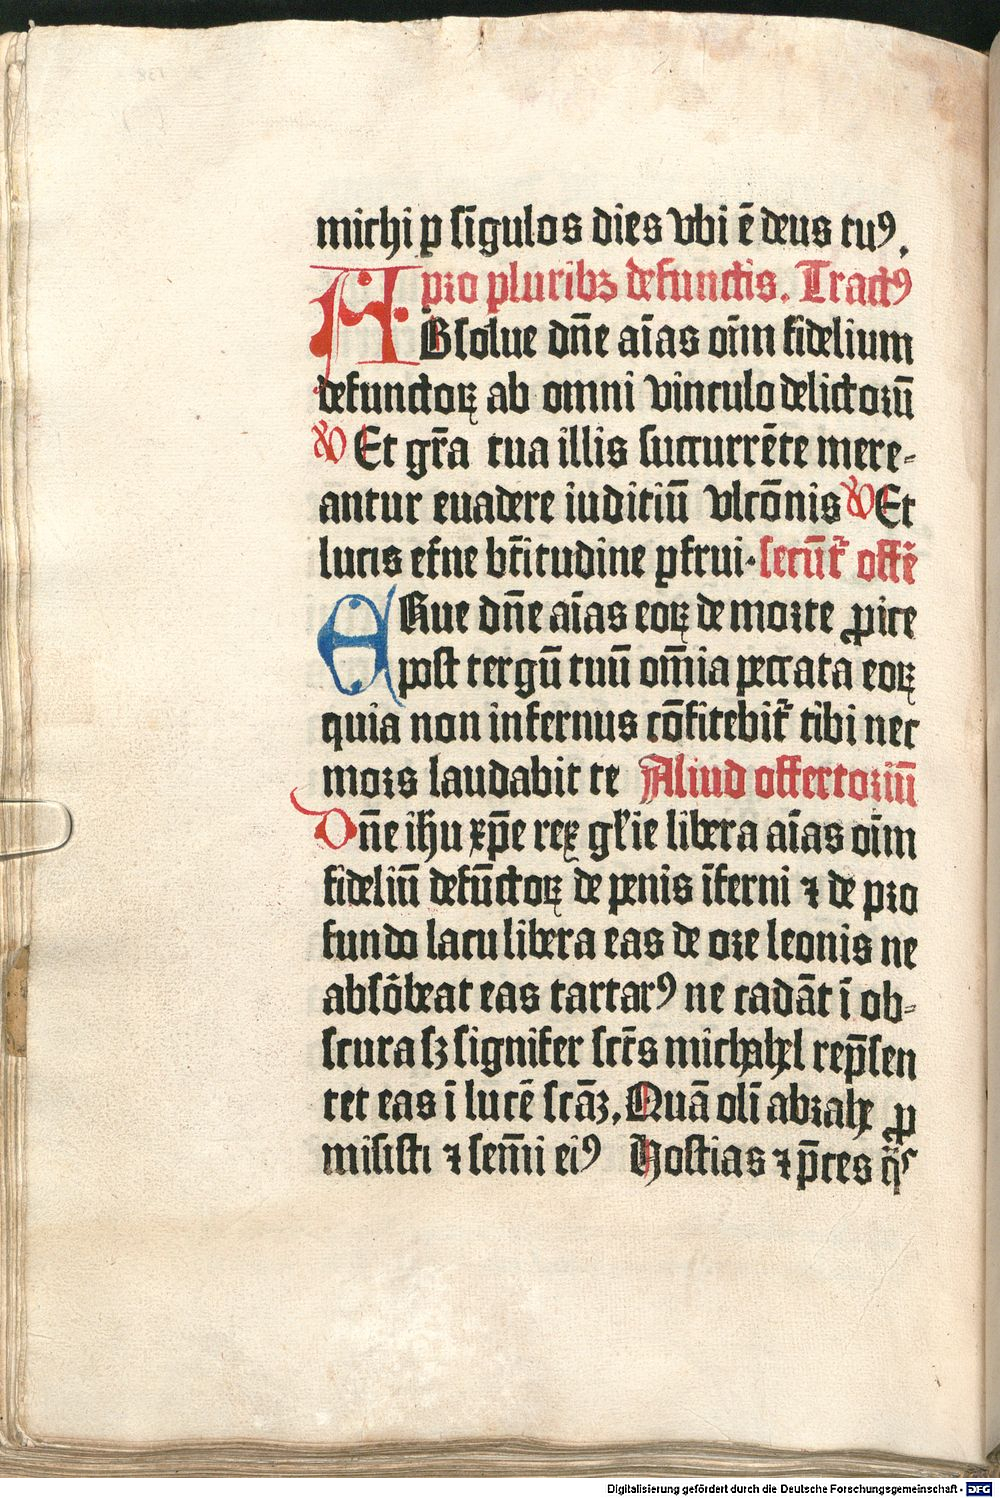 michi ꝑ sīgulos dies vbi ē deus tuꝰ.
pro pluribꝫ defunctis. Tractꝰ
ABsolue dn̄e aīas oīm fidelium
defunctoꝝ ab omni vinculo delictorū
℣ Et gr̄a tua illis succurrēte mere-
antur euadere iuditiū vlcōnis ℣ Et
lucis et̄ne bt̄itudine ꝑfrui. secūt᷑ offē
ERue dn̄e aīas eoꝝ de morte ꝓice
post tergū tuū om̄ia peccata eoꝝ
quia non infernus cōfitebit᷑ tibi nec
mors laudabit te Aliud offertoriū
Dn̄e ihu xp̄e rex gl'ie libera aīas oīm
fideliū defūctoꝝ de penis īferni ⁊ de pro
fundo lacu libera eas de ore leonis ne
absōbeat eas tartarꝰ ne cadāt ī ob-
scura sꝫ signifer sct̄s michahel rep̄sen
tet eas ī lucē scāꝫ. Quā olī abrahe ꝓ
misisti ⁊ sem̄i eiꝰ Hostias ⁊ p̄ces q̄s
Digitalisierung gefördert durch die Deutsche Forschungsgemeinschaft - DFG